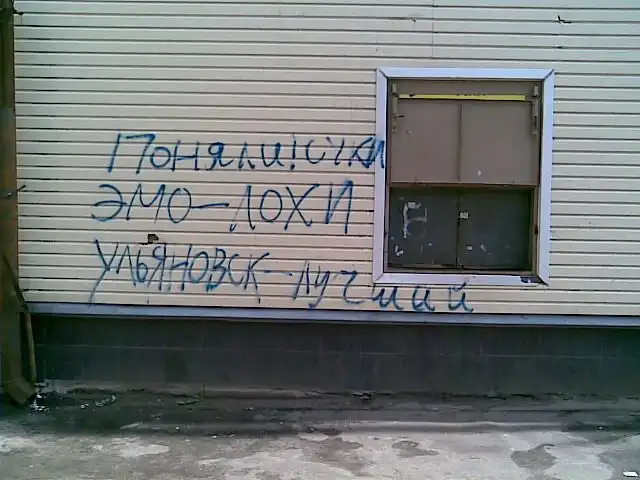 Поняли!сучки
ЭМО-ЛОХИ
УЛЬЯНОВСК-лучшай